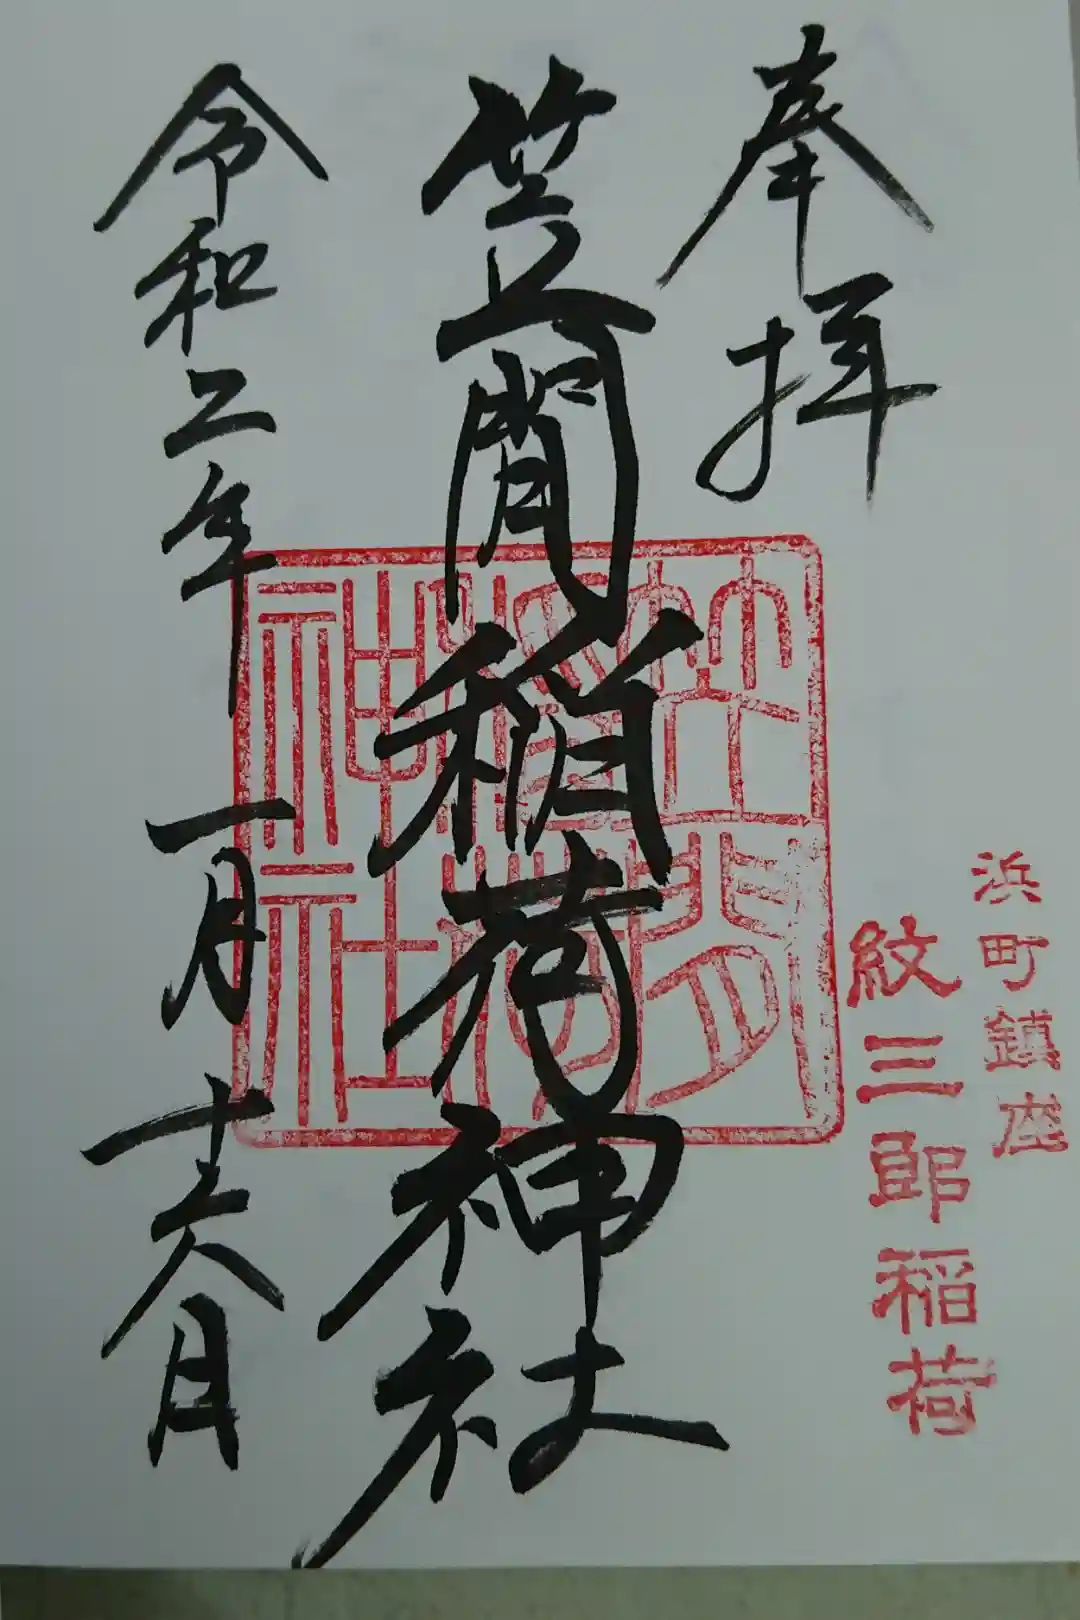 奉拝
浜町鎮座
紋三郎稲荷
笠間稲荷神社
笠間
稲荷
神社
令和二年 一月 十六日